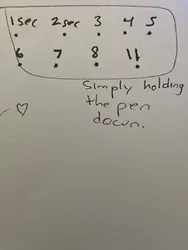 1sec 2sec 3 4 5
6 7 8 11
Simply holding
the pen
down.